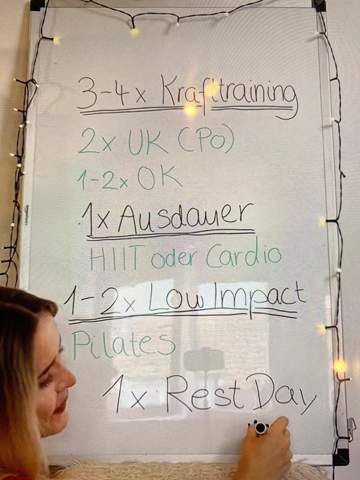 3-4x Krafttraining
2x UK (PO)
1-2x OK
1x Ausdauer
HIIT oder Cardio
1-2x Low Impact
Pilates
1x Rest Day